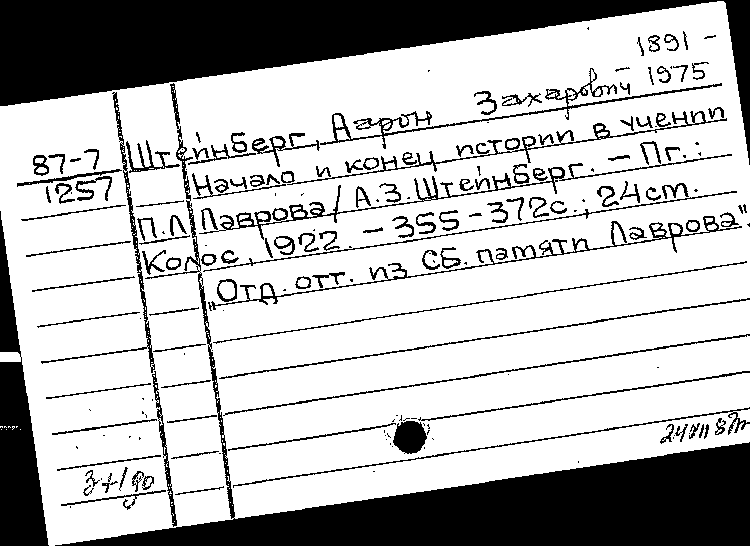 1891 -
- 1975
Штейнберг, Аарон Захарович
87-7
1257
Начало и конец истории в учении
П.Л. Лаврова / А.З. Штейнберг. - Пг.:
Колос, 1922. - 355-372с.; 24см.
"Отд. отт. из Сб. памяти Лаврова".